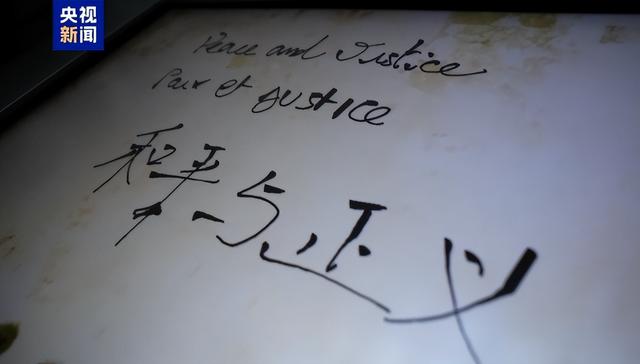 央视
新闻
Peace and Justice
Paix et Justice
和平与正义